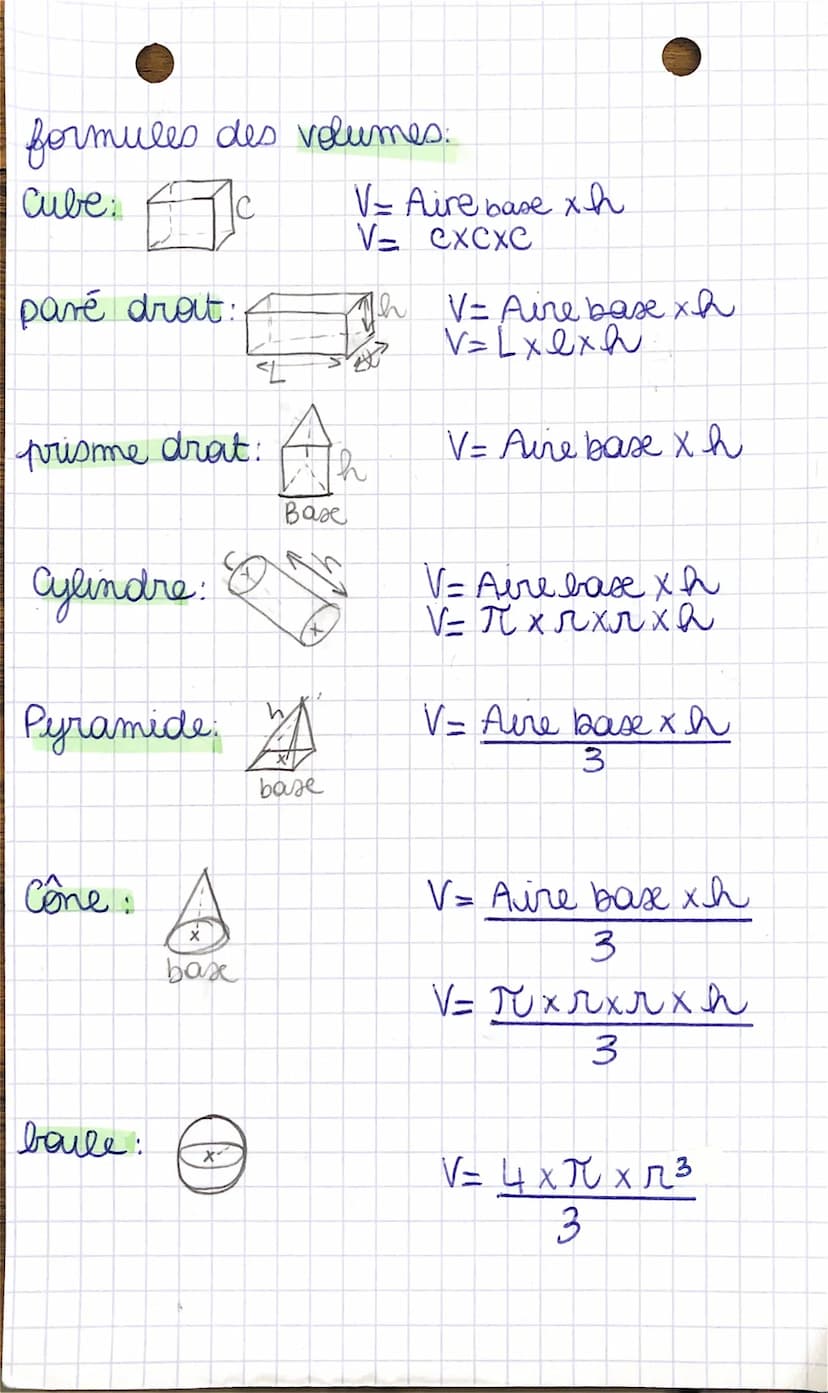 formules des volumes:
Cube: C V= Aire base x h
V= CxCxC
pavé droit: h V= Aire base x h
L l V= L x l x h
prisme droit: h V= Aire base x h
Base
Cylindre: h V= Aire base x h
V= π x r x r x h
Pyramide: h V= Aire base x h
3
base
Cône: V= Aire base x h
3
base
V= π x r x r x h
3
boule: V= 4 x π x r³
3